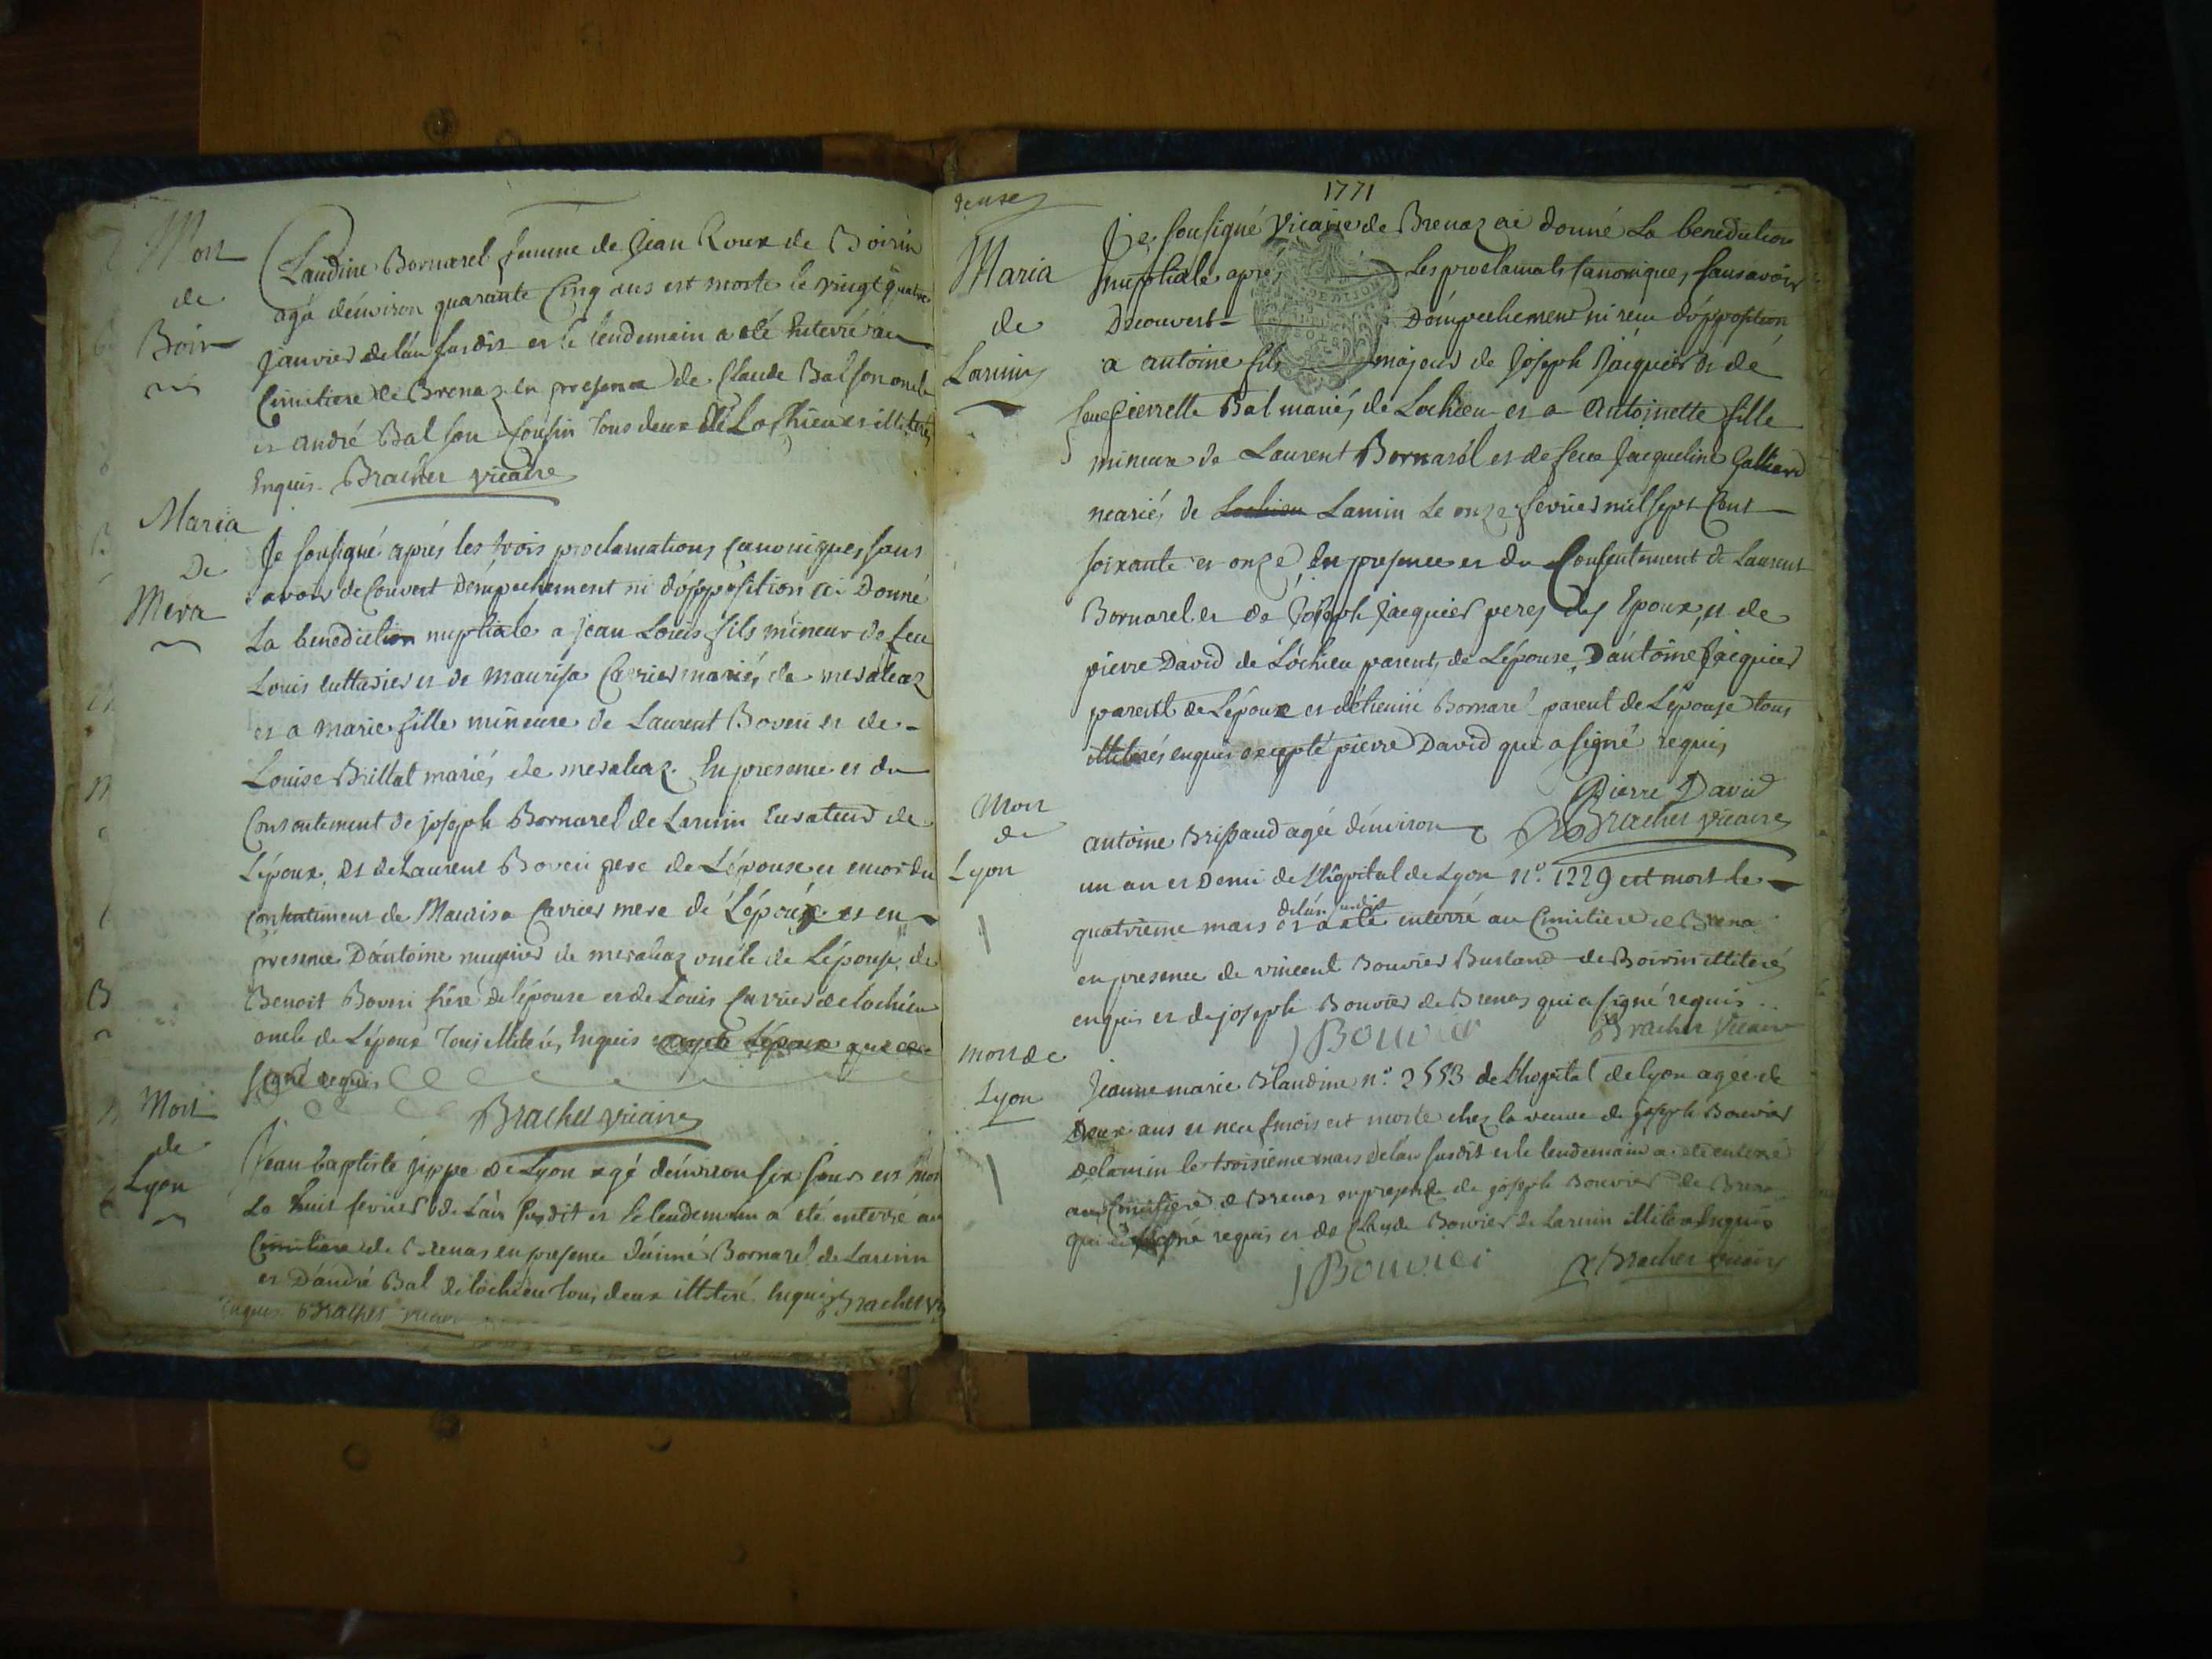 Mort
de
Boir
Claudine Bornarel femme de Jean Roux de Boirin
agé dénviron quarante Cinq ans est morte le vingt quatre
janvier de lán susdit et le lendemain a eté Enterré au
Cimitiere de Brenaz en presence de Claude Bal son oncle
et andré Bal son Cousin tous deux de Lochieu et illiteré
Enquis. Bracher vicaire
Maria
De
Mera
Je sousigné aprés les trois proclamations canoniques sans
avoir deCouvert Dempechement ni dópposition ai Donné
La benediction nuptiale a jean Louis fils mineur de feu
Louis et de maurisa Carrier mariés de meraleaz
et a marie fille mineure de Laurent Boveri et de
Louise Brillat mariés de meraleaz. En presence et du
Consentement de joseph Bornarel de Larmin Curateur de
Lépoux, et de Laurent Boveri pere de Lépouse et encor du
consentement de Maurisa Carrier mere de Lépoux et en
presence Dántoine mugnier de meraleaz oncle de Lépouse, de
Benoit Boveri frére de lépouse et de Louis Carrier de lochieu
oncle de Lépoux Tous illiterés Enquis excepté Lépoux qui a
signé requis
Bracher vicaire
Mort
de
Lyon
Jean baptiste jippe de Lyon agé dénviron six jours est mort
Le huit fevrier de Lán susdit et le lendemain a eté enterré au
Cimitiere de Brenas en presence dáimé Bornarel de Larmin
et Dándré Bal de lochieu tous deux illiteré Enquis Bracher
Enquis Bracher vicaire
1771
Maria
de
Larmin
Je sousigné Vicaire de Brenaz ai donné La benediction
nuptiale aprés Les proclamats canoniques sans avoir
Decouvert Dómpechement ni reçu dópposition
a antoine fils majeur de Joseph Jacquier et de
feue pierrette Bal mariés de Lochieu et a Antoinette fille
mineure de Laurent Bornarel et de feue Jacqueline
mariés de Lochieu Larmin Le onze fevrier mil sept Cent
soixante et onze En presence et du Consentement de Laurent
Bornarel et de Joseph Jacquier peres des Epoux, et de
pierre David de Lóchieu parent de Lépouse, Dántoine Jacquier
parent de Lépoux et détienne Bornarel parent de Lépouse tous
illiterés enquis excepté pierre David qui a signé requis
Pierre David
Bracher vicaire
Mort
de
Lyon
antoine Brissaud agée dénviron
un an et Demi de Lhôpital de Lyon n.º 1229 est mort le
quatrieme mars delán susdit et a eté enterré au Cimitiere de Brena
en presence de vincent Bouvier Burland de Boirin illiteré
enquis et de joseph Bouvier de Brenas qui a signé requis
j Bouvier Bracher Vicaire
mort de
Lyon
Jeanne marie Blandine n.º 2553 de Lhopital de lyon agée de
Deux ans et neuf mois est morte chez la veuve de joseph Bouvier
Delarmin le troisieme mars delan susdit et le lendemain a eté enterré
au Cimitiere de Brenas en presence de joseph Bouvier de Brena
qui a signé requis et de Claude Bouvier de Larmin illiteré Enquis
j Bouvier Bracher vicaire